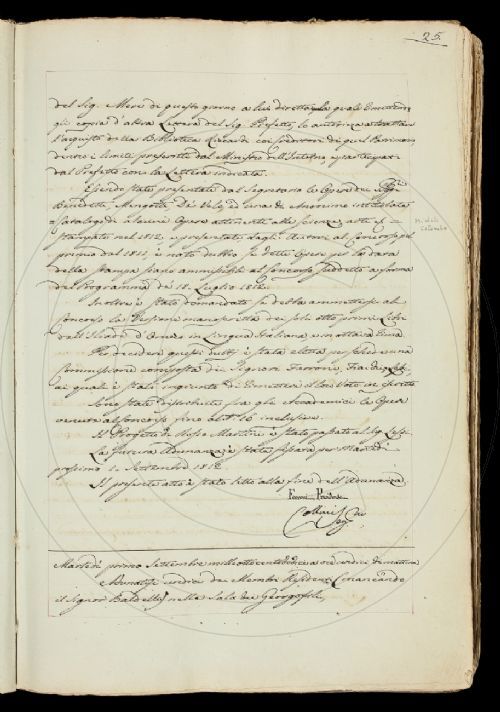 25.
del Sig. Mere di questo giorno a lui diretta, la quale
gli copia d'altra Lettera del Sig. Prefetto, lo autorizza a trattar
l'acquisto della Biblioteca Riccardi coi Creditori di quel Patrimonio
dentro i limiti prefissati dal Ministro dell'Interno e partecipati
dal Prefetto con la Lettera indicata.
Essendo state presentate dal Segretario le Opere dei Sigg.
Benedetti, Mengotti, De Velo, ed una di Anonimo intitolata
Catalogo di alcune Opere attenenti alle Scienze, arti
Stampate nel 1812. e presentate dagli Autori al Concorso pel
premio del 1811, è nato dubbio se dette Opere per la data
della stampa siano ammissibili al Concorso suddetto a forma
del Programma de' 18. Luglio 1812.
Inoltre è stato domandato se debba ammettersi al
Concorso la Versione manoscritta dei soli otto primi Libri
dell'Iliade d'Omero in Lingua Italiana e in ottava rima
Per decidere questi dubbj è stata eletta per schede una
Commissione composta dei Signori Ferroni,
ai quali è stato ingiunto di emettere il loro Voto in iscritto
Sono state distribuite fra gli Accademici le Opere
venute al Concorso fino al N.° 16 inclusive.
Il Progetto di Rosso Martini è stato passato al Sig.
La futura Adunanza è stata fissata per Martedì
prossimo 1. Settembre 1812.
Il presente atto è stato letto alla fine dell'Adunanza.
Ferroni Presidente
Collini Seg.
Martedì primo Settembre mille ottocento dodici a ore undici di mattina
Adunatisi undici dei Membri Residenti (mancando
il Signor Baldelli) nella Sala dei Georgofili,